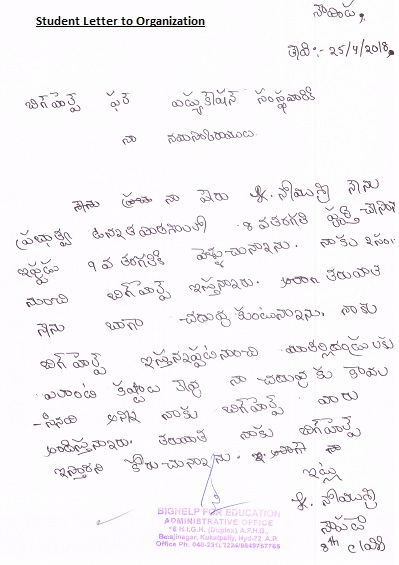 Student Letter to Organization
తేది:- 25/4/2018,
బిగ్‌హెల్ప్ ఫర్ ఎడ్యుకేషన్ సంస్థవారికి
నా నమస్కారములు.
నా పేరు సాయిశ్రీ నేను
8 వ తరగతి పూర్తి
ఇప్పుడు 9 వ తరగతికి వెళ్ళుచున్నాను. నాకు
నుంచి బిగ్‌హెల్ప్ ఇస్తున్నారు. తరువాత
నేను బాగా చదువు కుంటున్నాను. నాకు
బిగ్‌హెల్ప్ ఇస్తున్నప్పటినుంచి మా తల్లిదండ్రులకు
ఎలాంటి కష్టాలు లేవు నా చదువుకు కావల
-సినవి అన్ని నాకు బిగ్‌హెల్ప్ వారు
అందిస్తున్నారు. తరువాత నాకు బిగ్‌హెల్ప్
ఇస్తారని కోరుచున్నాను. నా
ఇట్లు
సాయిశ్రీ
8th class
BIGHELP FOR EDUCATION
ADMINISTRATIVE OFFICE
H.I.G.H. (Duplex) A.P.H.B.,
Balajinagar, Kukatpally, Hyd-72. A.P.
Office Ph. 040-231